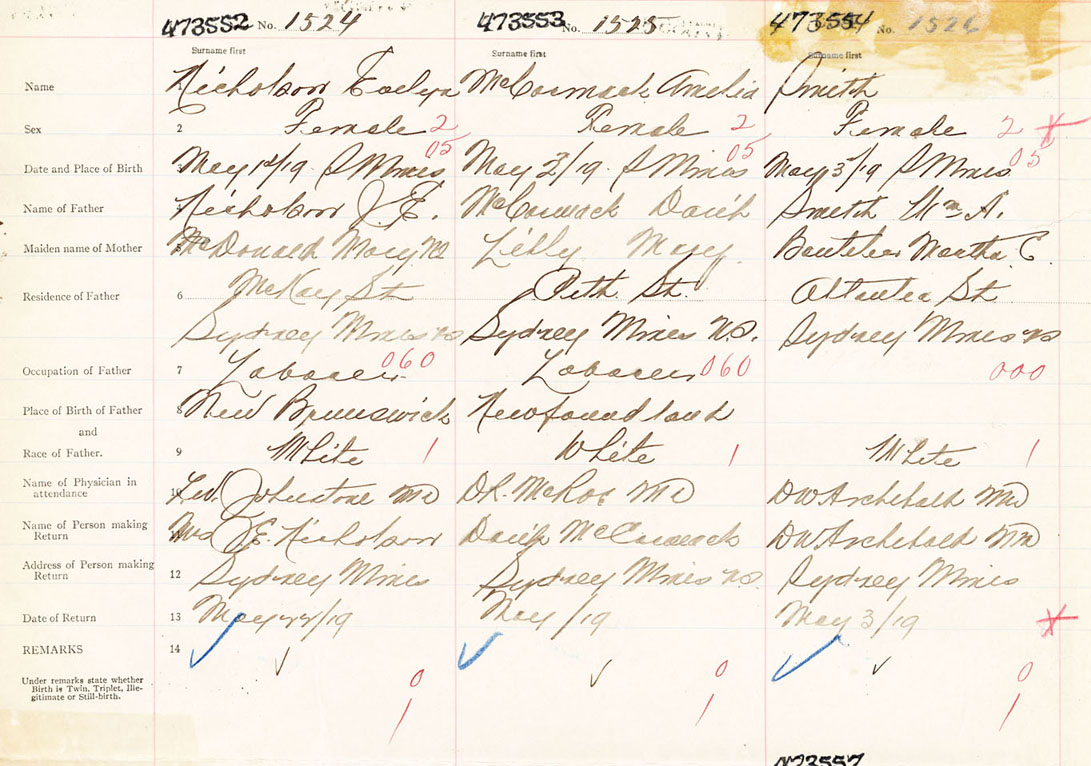 473552 No. 1524 473553 No. 1525 473554 No. 1526
Surname first Surname first Surname first
Name 1 Nicholson Evelyn McCormack Amelia Smith
Sex 2 Female 2 Female 2 Female 2 x
05 05 05
Date and Place of Birth 3 May 1st/19 S Mines May 2/19 S Mines May 3/19 S Mines
Name of Father 4 Nicholson J. E. McCormack David Smith Wm A.
Maiden name of Mother 5 McDonald Mary Lilly Mary Martha E.
Residence of Father 6 McKay St Pitt St. Atlantic St
Sydney Mines NS Sydney Mines N.S. Sydney Mines NS
Occupation of Father 7 Laborer 060 Laborer 060 000
Place of Birth of Father 8 New Brunswick Newfoundland
and
Race of Father. 9 White 1 White 1 White 1
Name of Physician in
attendance 10 Johnstone MD McRae MD DW Archibald MD
Name of Person making
Return 11 Mrs J E. Nicholson David McCormack DW Archibald MD
Address of Person making
Return 12 Sydney Mines Sydney Mines NS. Sydney Mines
Date of Return 13 May 27/19 May /19 May 3/19 x
REMARKS 14
Under remarks state whether
Birth is Twin, Triplet, Ille-
gitimate or Still-birth. 0 0 0
1 1 1
473557